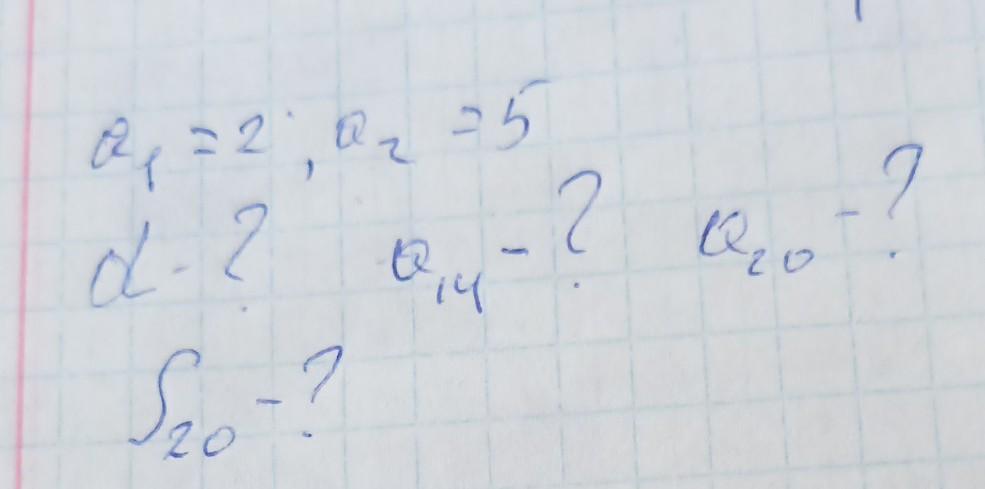 a₁ = 2, a₂ = 5
d - ? a₁₄ - ? a₂₀ - ?
S₂₀ - ?